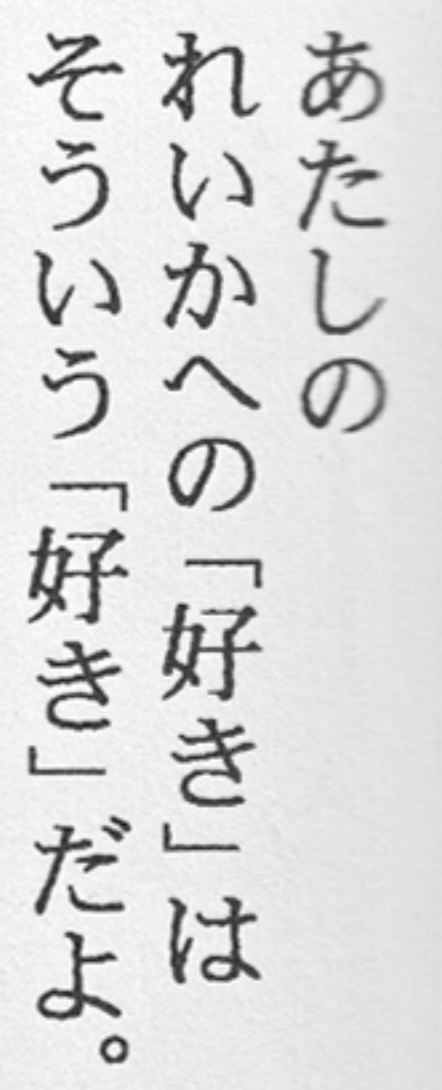 あたしの
れいかへの「好き」は
そういう「好き」だよ。